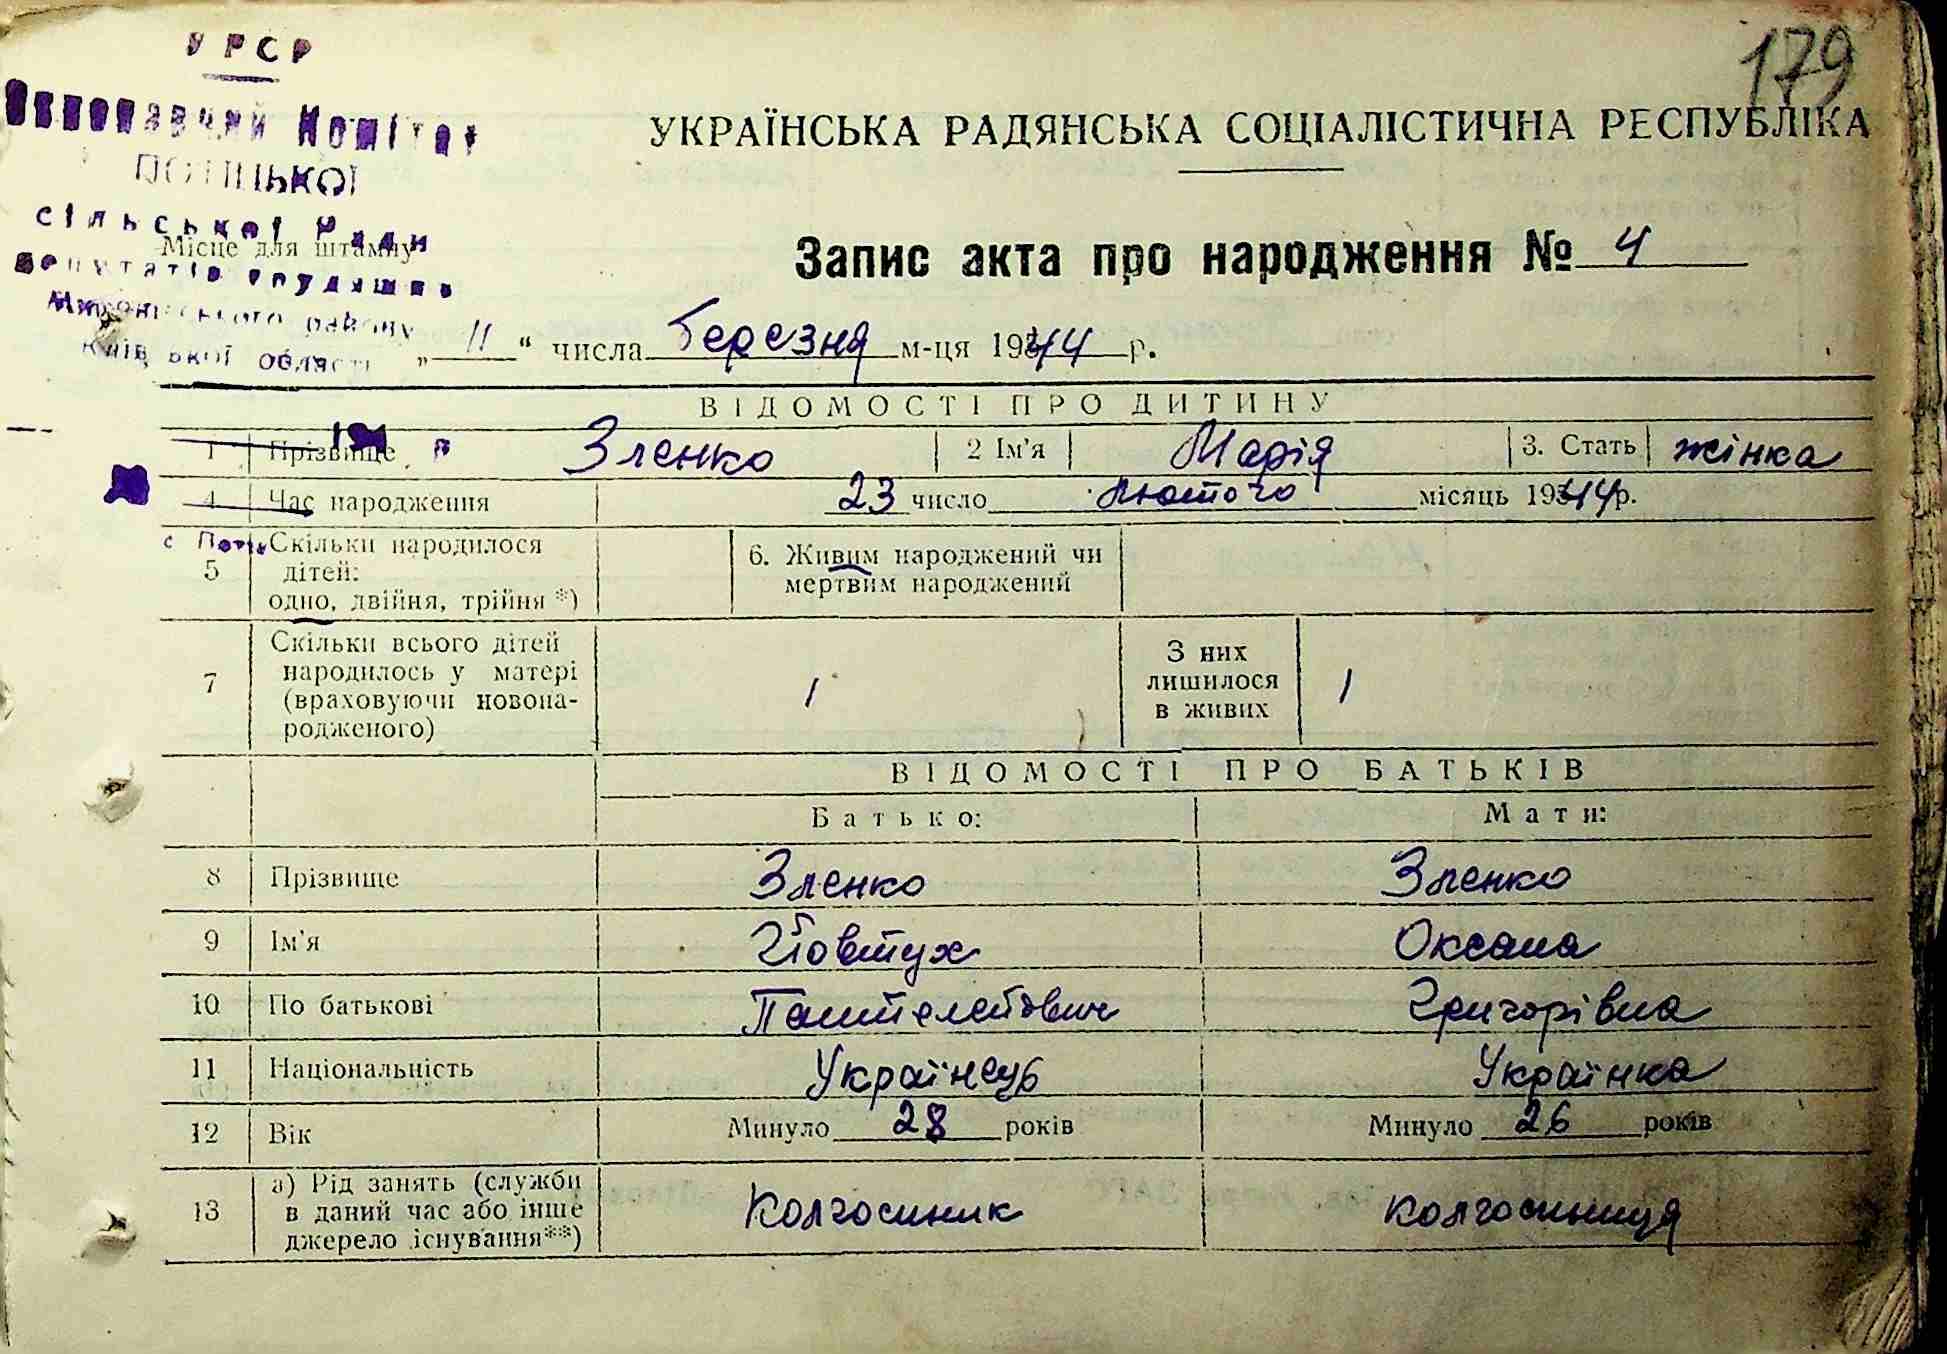 179
УРСР
Виконавчий Комітет
ПОТІЦЬКОЇ
сільської Ради
депутатів трудящих
Миронівського району
Київської області
Місце для штампу
УКРАЇНСЬКА РАДЯНСЬКА СОЦІАЛІСТИЧНА РЕСПУБЛІКА
Запис акта про народження № 4
„ 11 “ числа березня м-ця 1944 р.
ВІДОМОСТІ ПРО ДИТИНУ
1 Прізвище Зленко 2 Ім'я Марія 3. Стать жінка
4 Час народження 23 число лютого місяць 1944 р.
с Потік
5 Скільки народилося дітей: одно, двійня, трійня *)
6. Живим народжений чи мертвим народжений
7 Скільки всього дітей народилось у матері (враховуючи новонародженого) 1 З них лишилося в живих 1
ВІДОМОСТІ ПРО БАТЬКІВ
Батько: Мати:
8 Прізвище Зленко Зленко
9 Ім'я Йовтух Оксана
10 По батькові Пантелейович Григорівна
11 Національність Українець Українка
12 Вік Минуло 28 років Минуло 26 років
13 а) Рід занять (служби в даний час або інше джерело існування**) Колгосник колгосниця